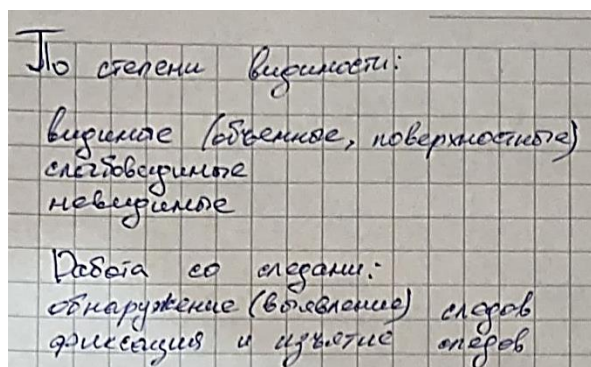 По степени видимости:
видимые (объемные, поверхностные)
слабовидимые
невидимые
Работа со следами:
обнаружение (выявление) следов
фиксация и изъятие следов